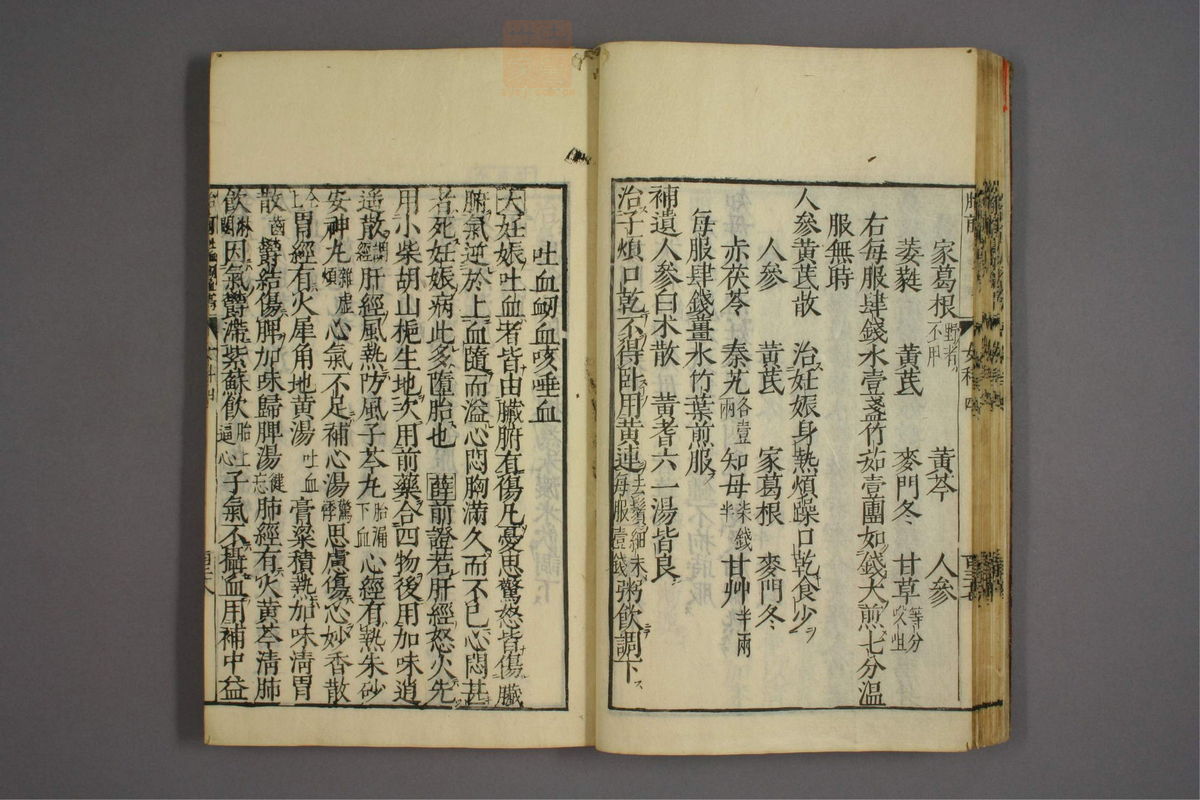 家葛根野者不用 黄芩 人參
萎蕤 黄芪 麥門冬 甘草等分㕮咀
右每服肆錢水壹盞竹茹壹團如錢大煎七分温
服無時
人參黄芪散 治妊娠身熱煩躁口乾食少
人參 黄芪 家葛根 麥門冬
赤茯苓 秦艽各壹兩 知母柒錢半 甘艸半兩
每服肆錢薑水竹葉煎服
補遺人參白朮散 黄耆六一湯皆良
治子煩口乾不得卧用黄連去鬚細末每服壹錢粥飲調下
吐血衂血咳唾血
大妊娠吐血者皆由臟腑有傷凡憂思驚怒皆傷臟
腑氣逆於上血隨而溢心悶胸滿久而不已心悶甚
者死妊娠病此多墮胎也 薛前證若肝經怒火先
用小柴胡山梔生地次用前藥合四物後用加味逍
遥散調經肝經風熱防風子芩丸胎漏下血心經有熱朱砂
安神丸雜虚煩心氣不足補心湯驚悸思慮傷心妙香散
胃經有火犀角地黄湯吐血膏粱積熱加味清胃
散齒欝結傷脾加味歸脾湯健忘肺經有火黄芩清肺
飲淋閟因氣欝滯紫蘇飲胎上逼心子氣不攝血用補中益